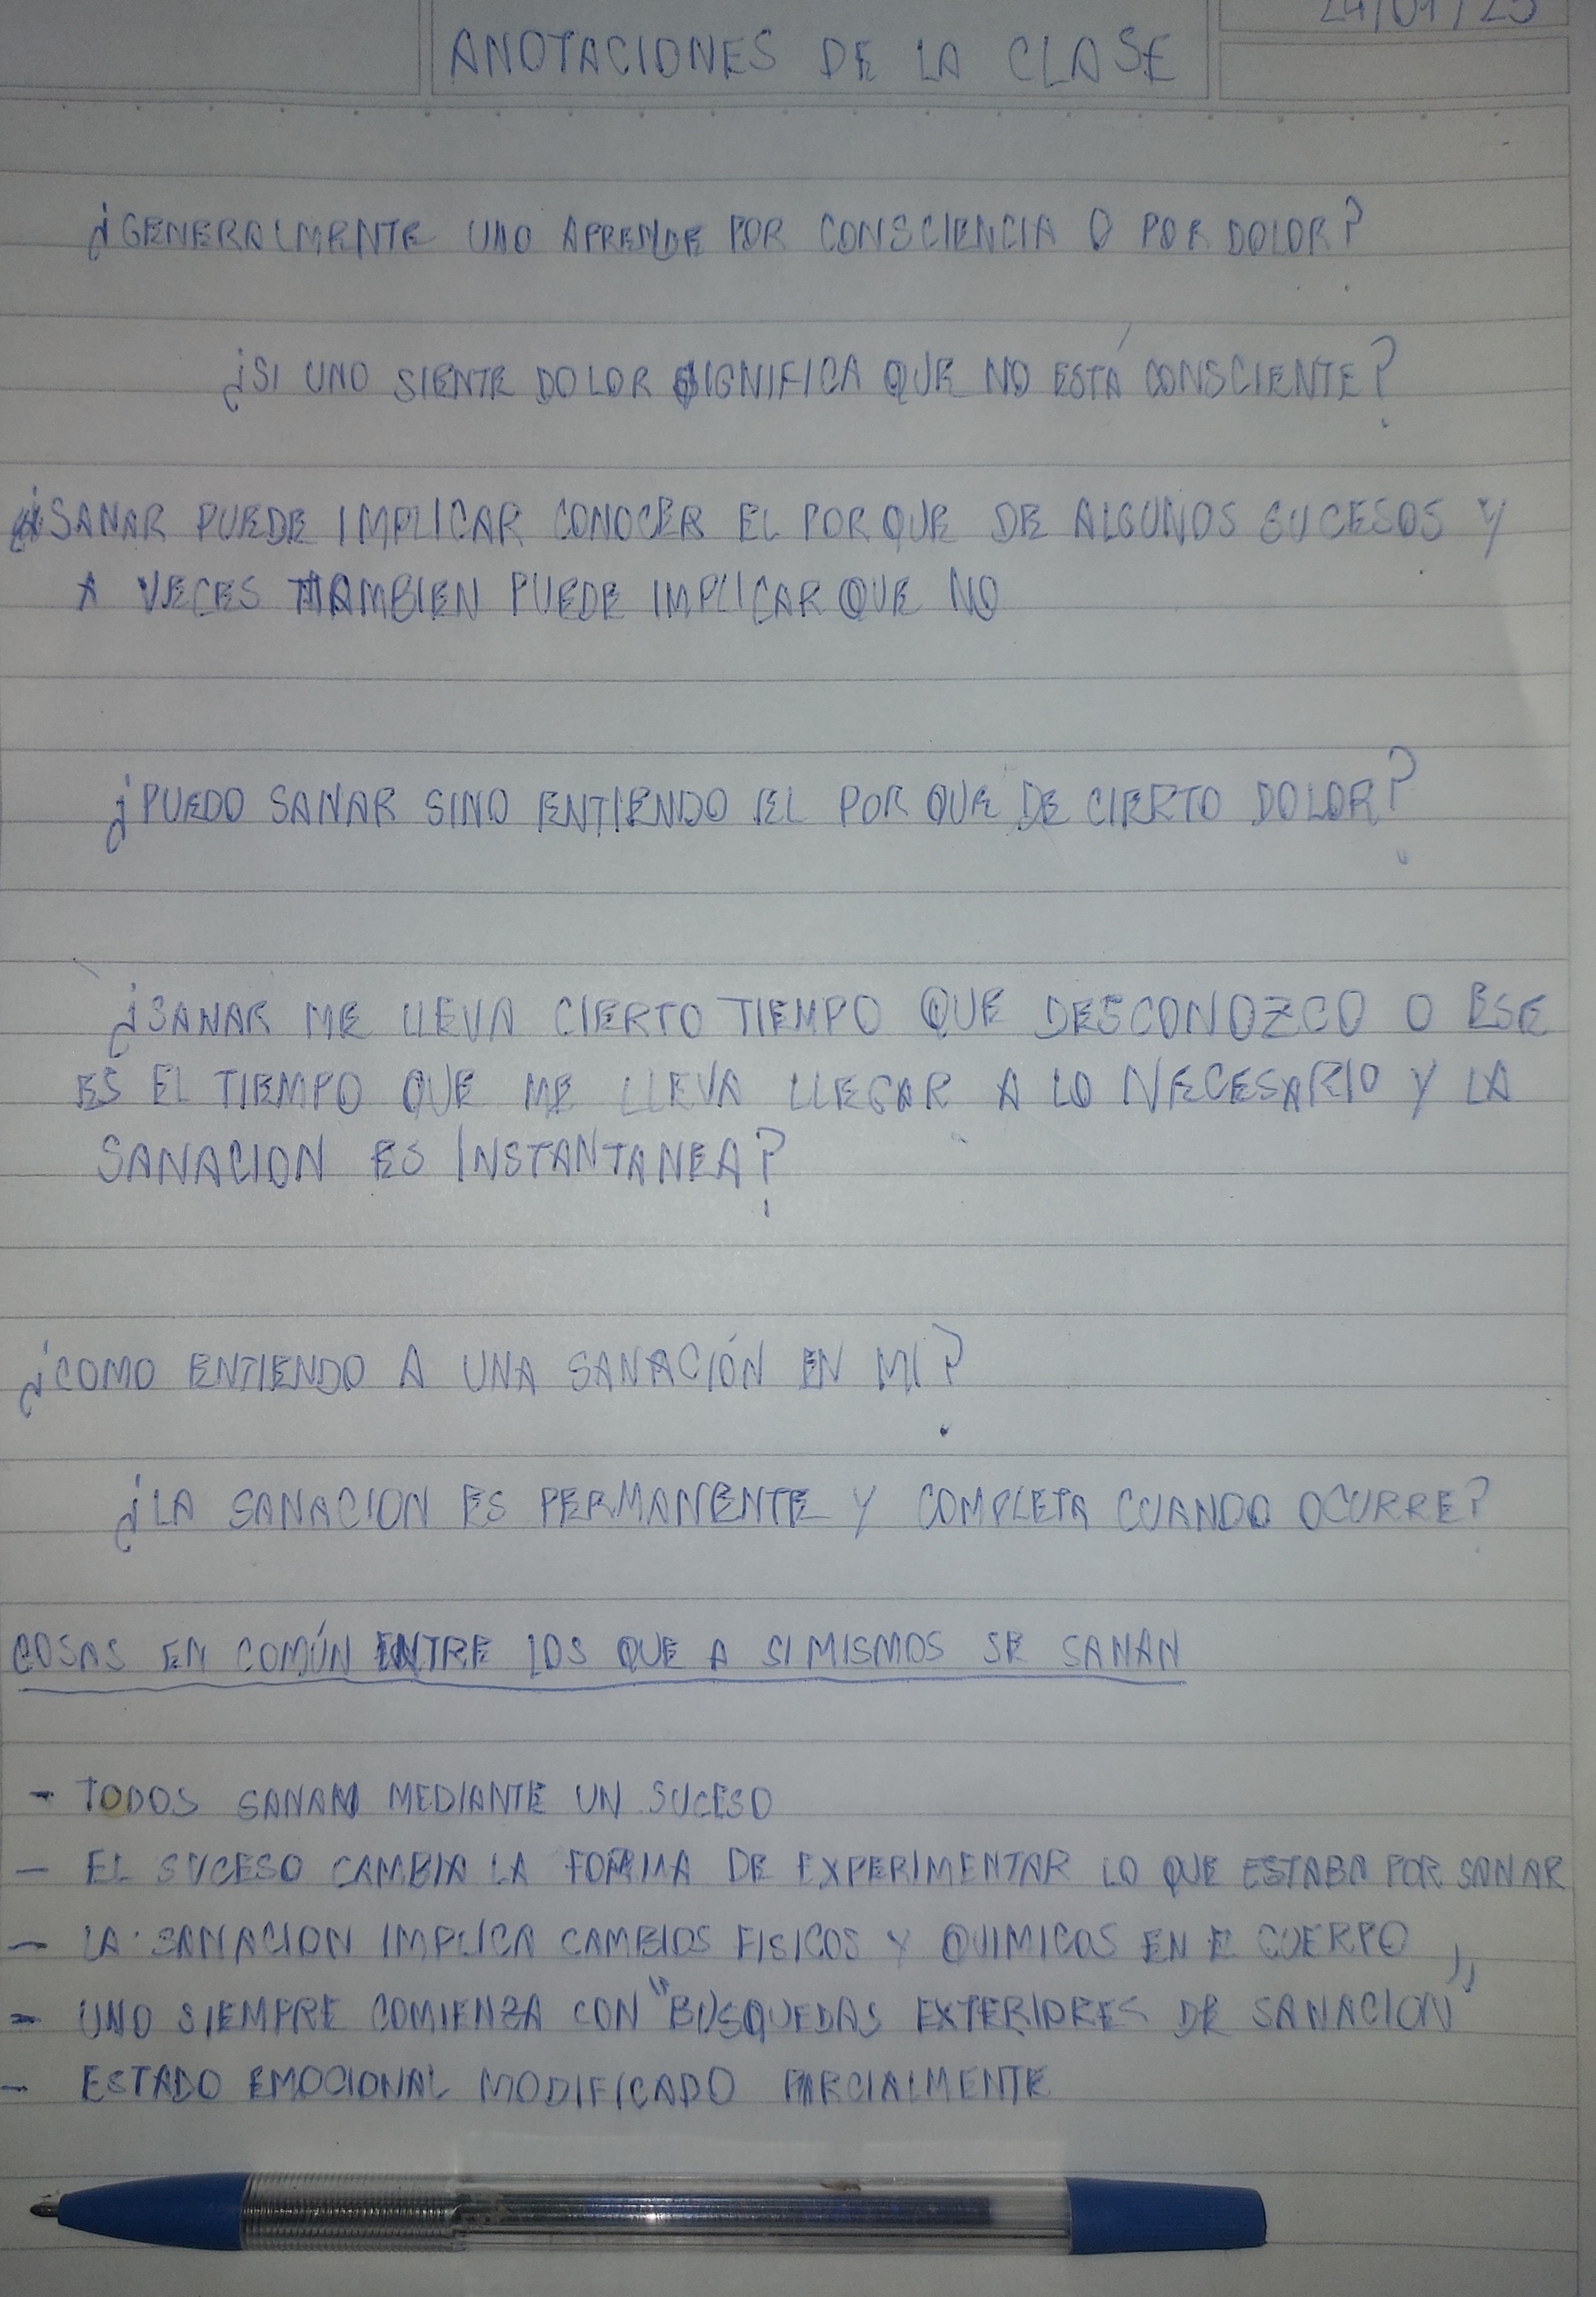 24/01/25
ANOTACIONES DE LA CLASE
¿GENERALMENTE UNO APRENDE POR CONSCIENCIA O POR DOLOR?
¿SI UNO SIENTE DOLOR SIGNIFICA QUE NO ESTÁ CONSCIENTE?
¿SANAR PUEDE IMPLICAR CONOCER EL POR QUE DE ALGUNOS SUCESOS Y
A VECES TAMBIEN PUEDE IMPLICAR QUE NO
¿PUEDO SANAR SINO ENTIENDO EL POR QUE DE CIERTO DOLOR?
¿SANAR ME LLEVA CIERTO TIEMPO QUE DESCONOZCO O ESE
ES EL TIEMPO QUE ME LLEVA LLEGAR A LO NECESARIO Y LA
SANACION ES INSTANTANEA?
¿COMO ENTIENDO A UNA SANACIÓN EN MI?
¿LA SANACION ES PERMANENTE Y COMPLETA CUANDO OCURRE?
COSAS EN COMÚN ENTRE LOS QUE A SI MISMOS SE SANAN
- TODOS SANAN MEDIANTE UN SUCESO
- EL SUCESO CAMBIA LA FORMA DE EXPERIMENTAR LO QUE ESTABA POR SANAR
- LA SANACION IMPLICA CAMBIOS FISICOS Y QUIMICOS EN E CUERPO
- UNO SIEMPRE COMIENZA CON "BUSQUEDAS EXTERIORES DE SANACION"
- ESTADO EMOCIONAL MODIFICADO PARCIALMENTE